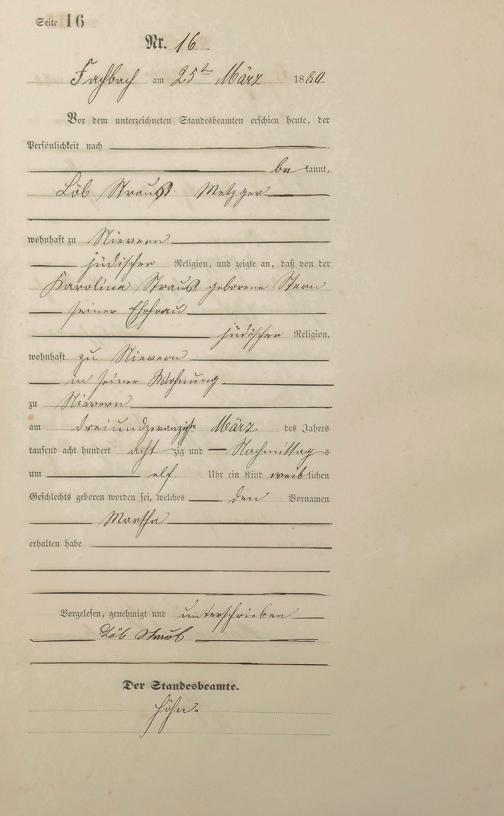 Seite 16
Nr. 16
Fachbach am 25ten März 1880
Vor dem unterzeichneten Standesbeamten erschien heute, der
Persönlichkeit nach
bekannt,
Löb Strauß Metzger
wohnhaft zu Nievern
jüdischer Religion, und zeigte an, daß von der
Karolina Strauß geborene Stern
seiner Ehefrau
jüdischer Religion,
wohnhaft zu Nievern
in seiner Wohnung
zu Nievern
am dreiundzwanzigst März des Jahres
tausend acht hundert achtzig und Nachmittags
um elf Uhr ein Kind weiblichen
Geschlechts geboren worden sei, welches den Vornamen
Martha
erhalten habe
Vorgelesen, genehmigt und unterschrieben
Löb Strauß
Der Standesbeamte.
Höhn.